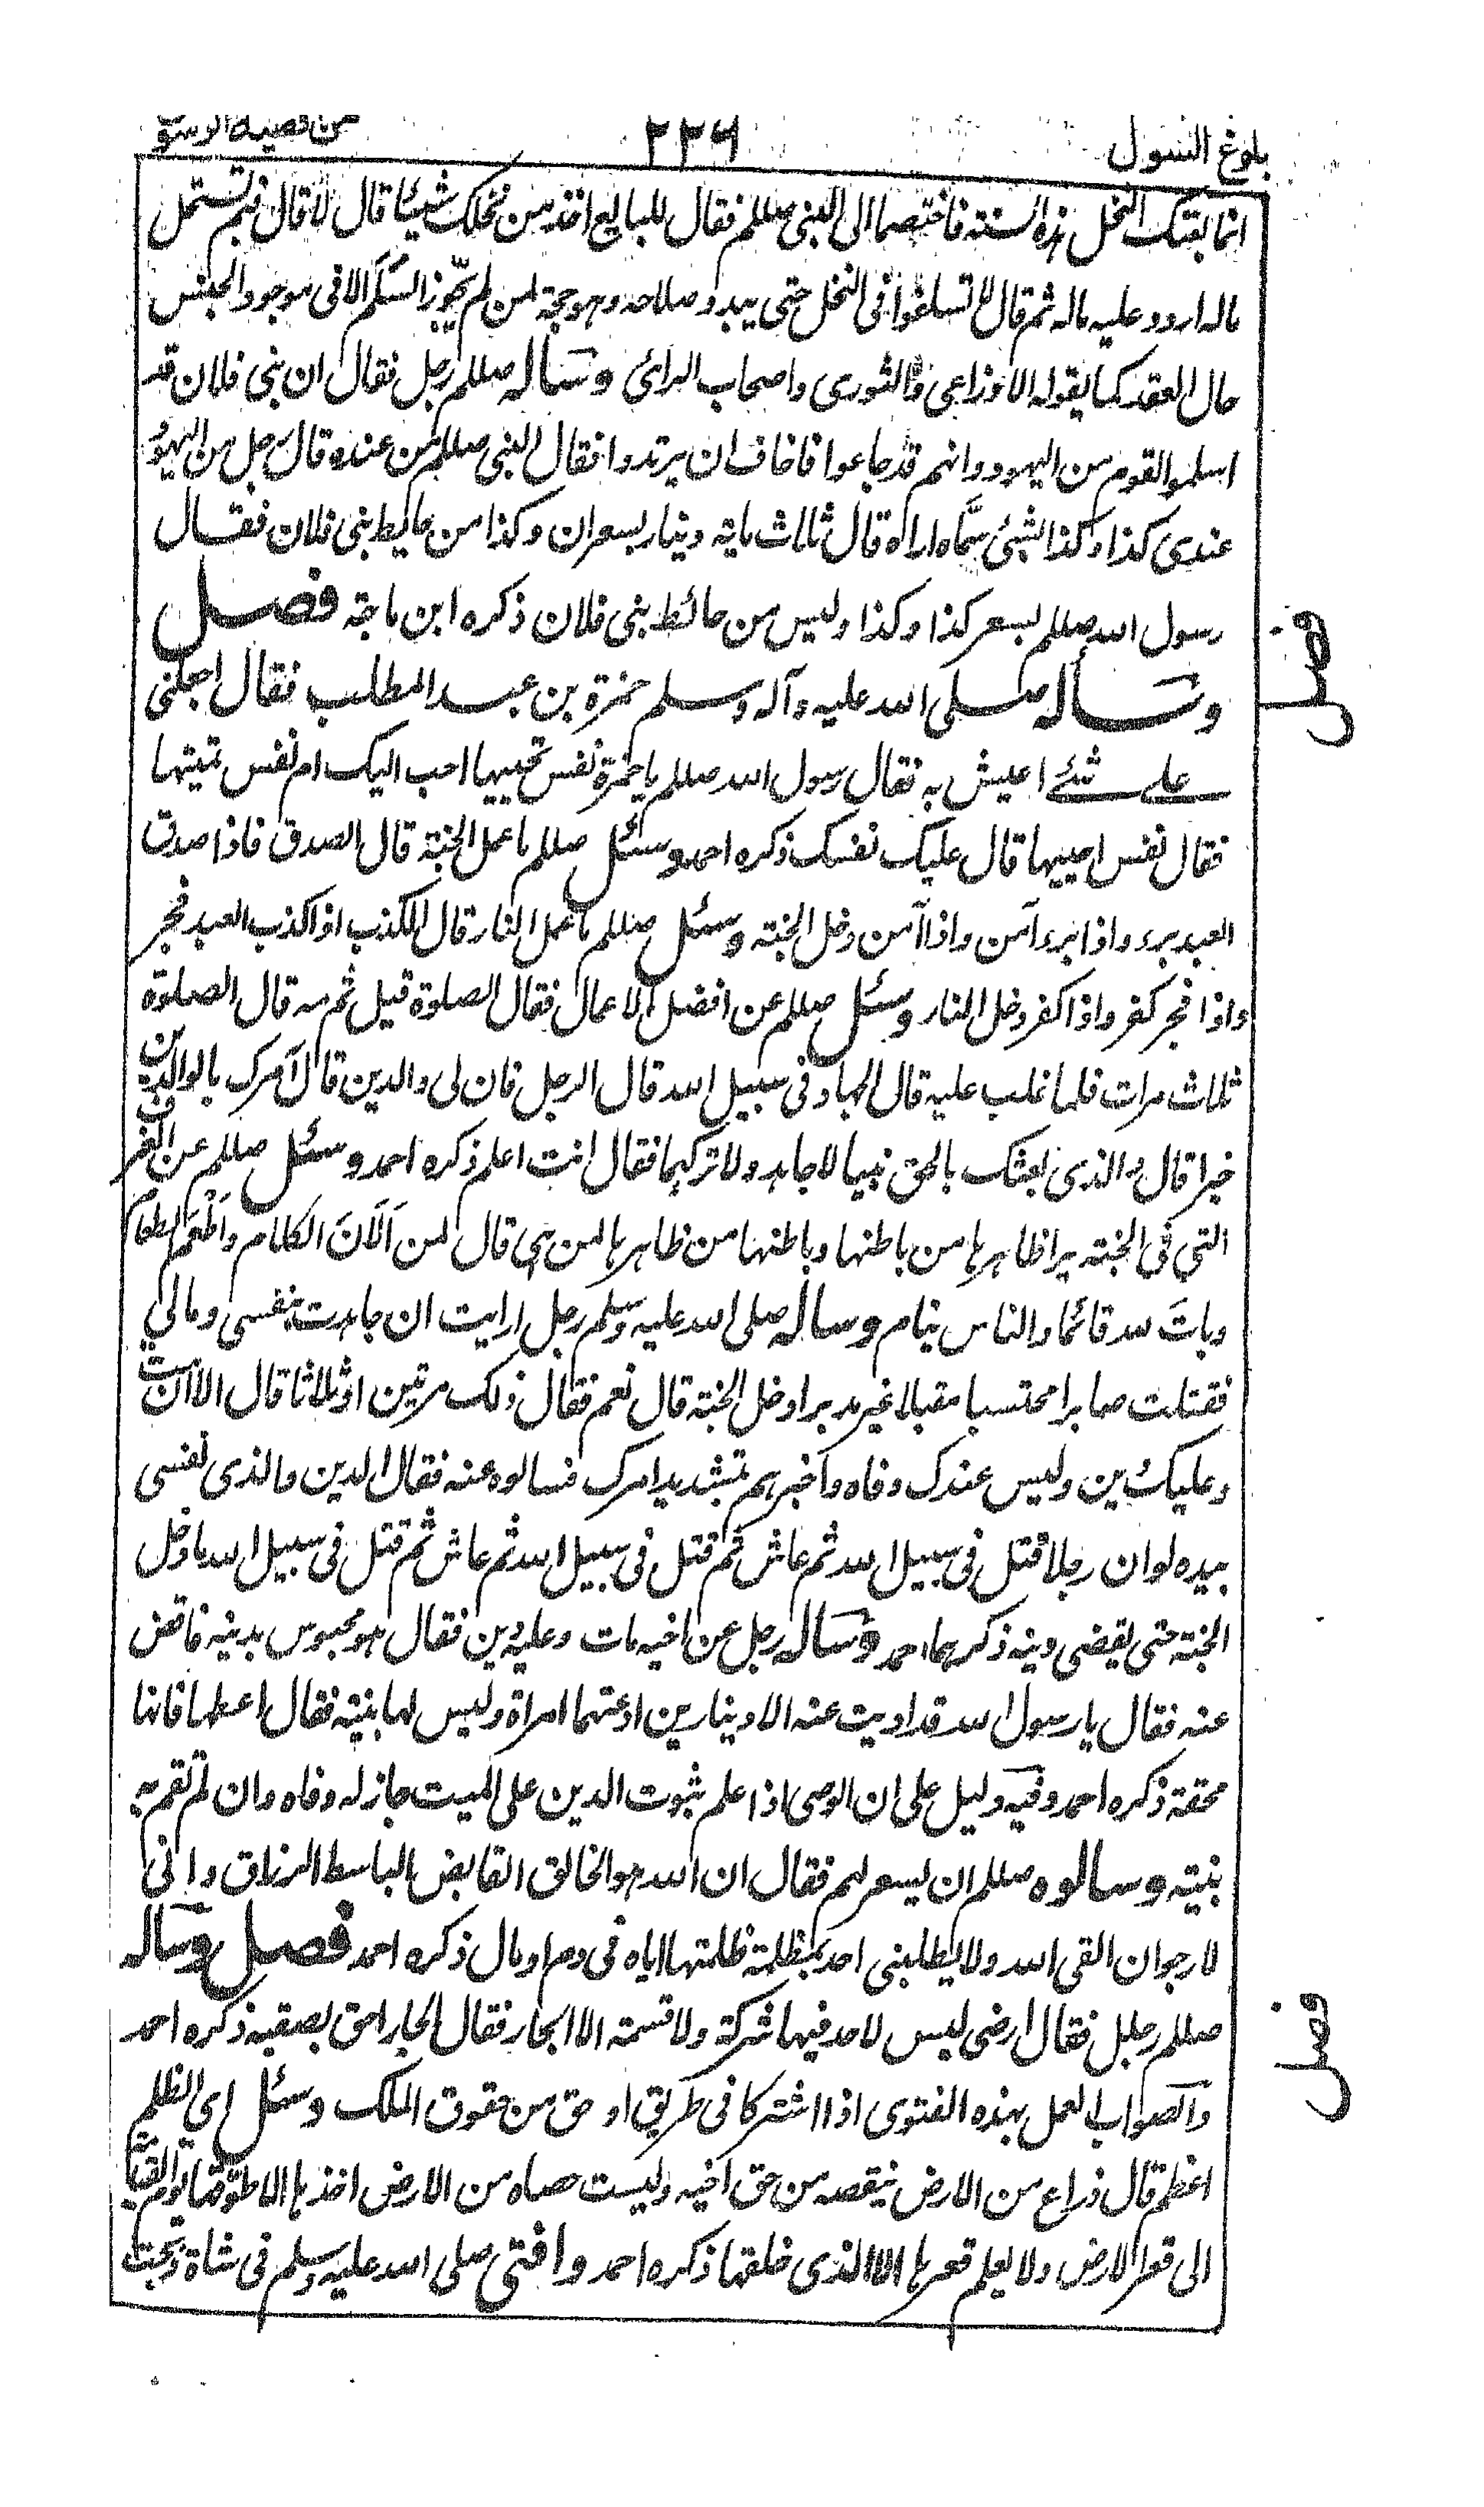 بلوغ السول ٢٢٦ من اقضية الرسول
انما بعتك النخل هذه السنة فاختصما الى النبى صللم فقال للبايع اخذ من نخلك شيئا قال لا قال فبم تستحل
ماله اردد عليه ماله ثم قال لا تسلفوا فى النخل حتى يبدو صلاحه وهو حجة لمن لم يجوز السلم الا فى موجود الجنس
حال العقد كما يقوله الاوزاعى والثورى واصحاب الرائ وساله صللم رجل فقال ان بنى فلان قد
اسلموا لقوم من اليهود وانهم قد جاعوا فاخاف ان يرتدوا فقال النبى صللم من عنده قال رجل من اليهود
عندى كذا وكذا لشئ سماه اراه قال ثلاث ماية دينار بسعر ان وكذا من حايط بنى فلان فقال
رسول الله صللم بسعر كذا وكذا وليس من حائط بنى فلان ذكره ابن ماجة فصل
وسأله صلى الله عليه وآله وسلم حمزة بن عبد المطلب فقال اجعلنى
على شئ اعيش به فقال رسول الله صللم يا حمزة نفس تحييها احب اليك ام نفس تميتها
فقال نفس احييها قال عليك نفسك ذكره احمد وسئل صللم ما عمل الجنة قال الصدق فاذا صدق
العبد برء واذا برء آمن واذا آمن دخل الجنة وسئل صللم ما عمل النار قال الكذب اذا كذب العبد فجر
واذا فجر كفر واذا كفر دخل النار وسئل صللم عن افضل الاعمال فقال الصلوة قيل ثم مه قال الصلوة
ثلاث مرات فلما غلب عليه قال الجهاد فى سبيل الله قال الرجل فان لى والدين قال آمرك بالوالدين
خيرا قال والذى بعثك بالحق نبيا لاجاهد ولاتركهما فقال انت اعلم ذكره احمد وسئل صللم عن الغرف
التي فى الجنة يرا ظاهرها من باطنها وباطنها من ظاهرها لمن هى قال لمن الان الكلام واطعم الطعام
وبات لله قائما والناس ينام وساله صلى الله عليه وسلم رجل ارايت ان جاهدت بنفسى ومالي
فقتلت صابرا محتسبا مقبلا غير مدبر ادخل الجنة قال نعم فقال ذلك مرتين او ثلاثا قال الا ان مت
وعليك دين وليس عندك وفاه واخبرهم بتشديد امرك فسالوه عنه فقال الدين والذى نفسى
بيده لو ان رجلا قتل فى سبيل الله ثم عاش ثم قتل فى سبيل الله ثم عاش ثم قتل فى سبيل الله ما دخل
الجنة حتى يقضى دينه ذكرهما احمد وساله رجل عن اخيه مات وعليه دين فقال هو محبوس بدينه فاقض
عنه فقال يا رسول الله قد اديت عنه الا دينارين ادعتهما امراة وليس لها بنية فقال اعطها فانها
محقة ذكره احمد وفيه دليل على ان الوصى اذا علم ثبوت الدين على الميت جاز له وفاه وان لم تقم به
بنية وسالوه صللم ان يسعر لهم فقال ان الله هو الخالق القابض الباسط الرزاق وانى
لارجو ان القى الله ولا يطلبنى احد بمظلمة ظلمتها اياه فى دم او مال ذكره احمد فصل وساله
صللم رجل فقال ارضى ليس لاحد فيها شركة ولا قسمة الا الجار فقال الجار احق بصقبه ذكره احمد
والصواب العمل بهذه الفتوى اذا اشتركا فى طريق او حق من حقوق الملك وسئل اي الظلم
اعظم قال ذراع من الارض ينقصه من حق اخيه وليست حصاه من الارض اخذها الا طوقها يوم القيامة
الى قعر الارض ولا يعلم قعرها الا الذى خلقها ذكره احمد وافتى صلى الله عليه وسلم فى شاة ذبحت
فصل
فصل